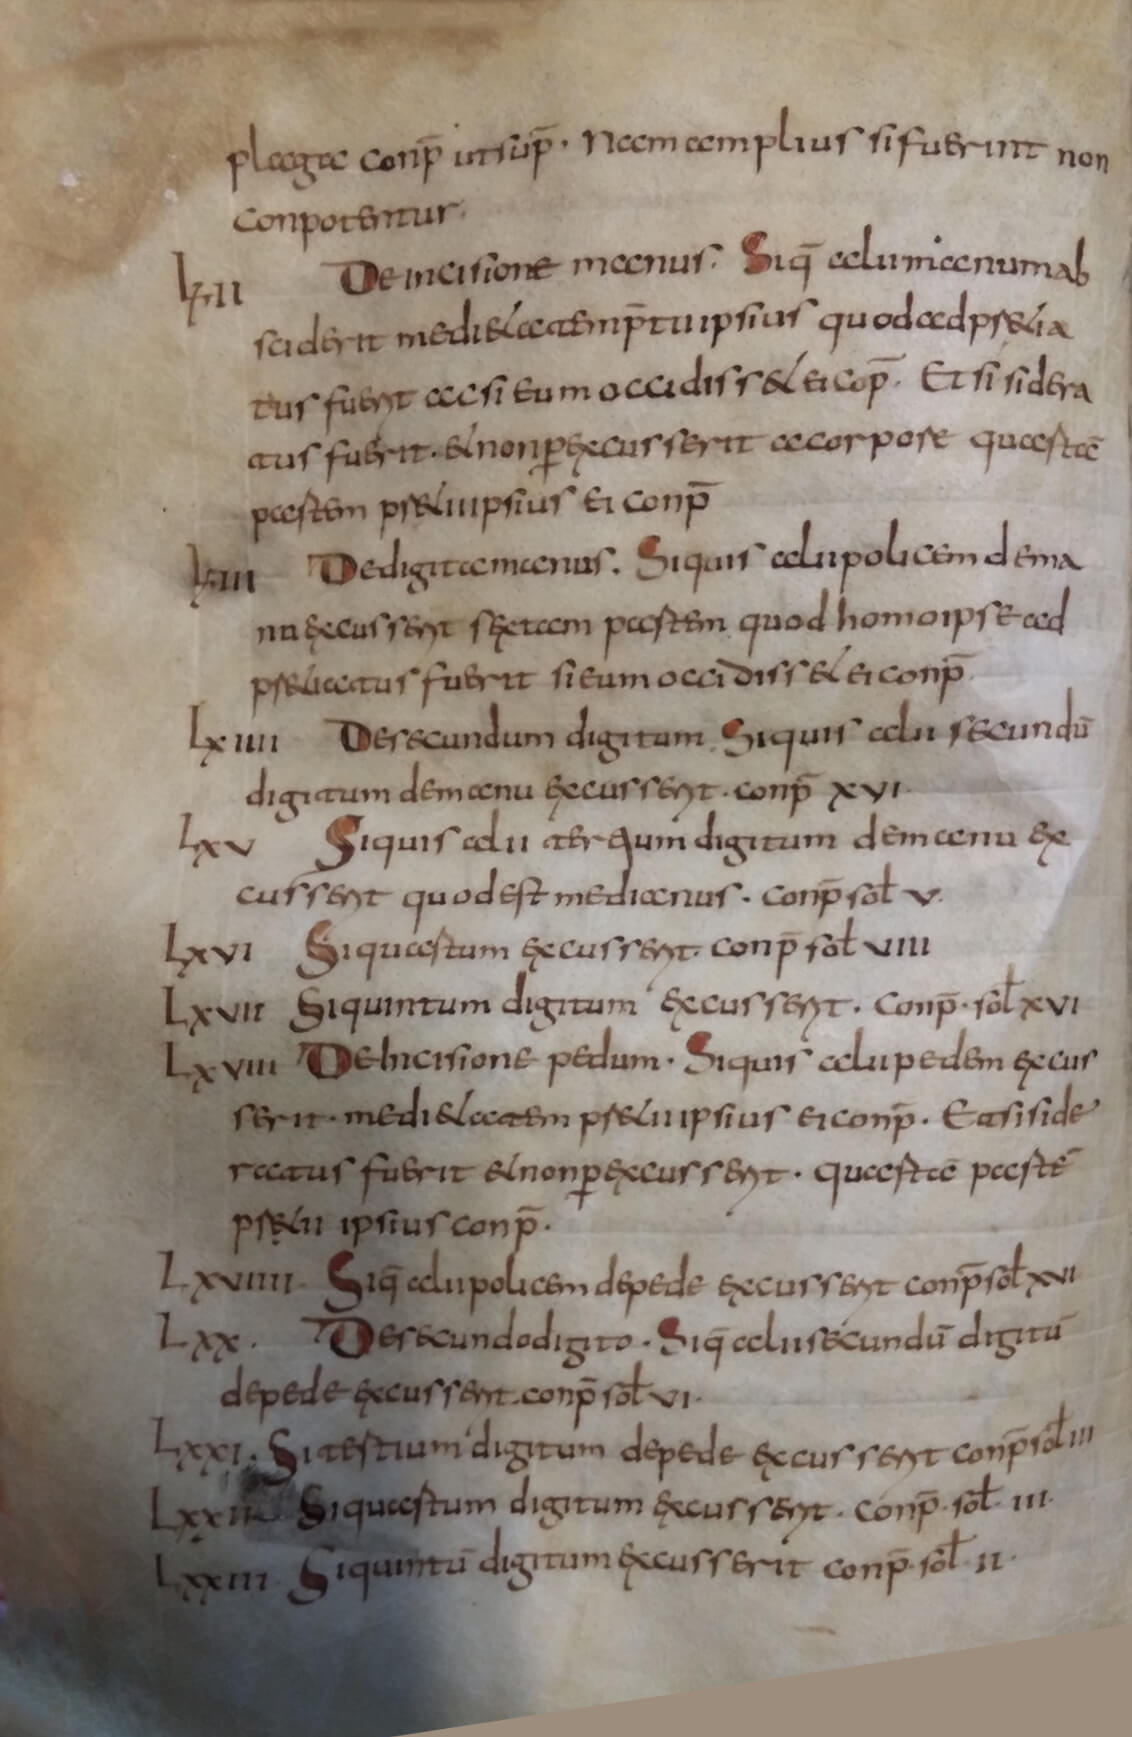 plagae conp̄ ut sup̄. Nam amplius si fuerint non
conpotentur.
LXII De incisione manus. Siq̄ alii manum ab
sciderit medietatem p̄tii ipsius quod ad p̄tia
tus fuerit ac si eum occidisset ei cop̄. Et si sidera
tus fuerit. et non perexcusserit a corpose quarta
partem pretii ipsius ei conp̄
LXIII De digita manus. Siquis alii policem de ma
nu excusserit sextam partem quod homo ipse ad
pretiatus fuerit si eum occidisset ei conp̄
LXIIII De secundum digitum Siquis alii secundū
digitum de manu excusserit. conp̄ xvi.
LXV Siquis alii tertium digitum de manu ex
cusserit quod est medianus. conp̄ sol v.
LXVI Si quartum excusserit. conp̄ sol viii
LXVII Si quintum digitum excusserit. Conp̄. sol xvi
LXVIII De Incisione pedum. Siquis alii pedem excus
serit. medietatem pretii ipsius ei conp̄. Et si side
ratus fuerit et non perexcusserit. quartā partē
pretii ipsius conp̄.
LXVIIII. Siq̄ alii policem de pede excusserit conp̄ sol xvi
LXX. De secundo digito. Siq̄ alii secundū digitū
de pede excusserit. conp̄ sol vi.
LXXI. Si tertium digitum de pede excusserit conp̄ sol iii
LXXII Si quartum digitum excusserit. conp̄. sol. iii.
LXXIII Si quintū digitum excusserit conp̄. sol. ii.